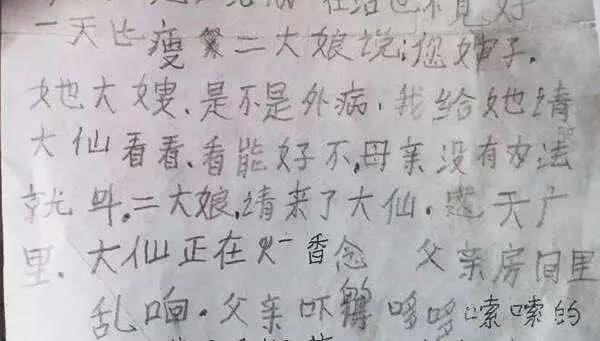 在治也不見好
一天比瘦 二大娘说:您婶子.
她大嫂.是不是外病.我给她请
大仙看看.看能好不,母亲没有办法
就叫.二大娘.请来了大仙. 天广
里.大仙正在火香念 父亲房间里
乱响.父亲吓得哆哆嗦嗦的